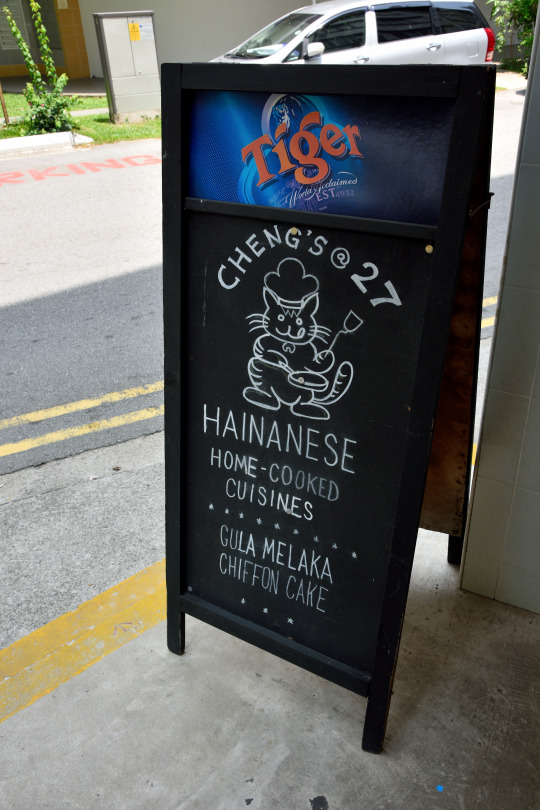 PARKING
Tiger
World acclaimed
EST. 1932
CHENG'S @ 27
HAINANESE
HOME-COOKED
CUISINES
* * * * * * * * *
GULA MELAKA
CHIFFON CAKE
* * *